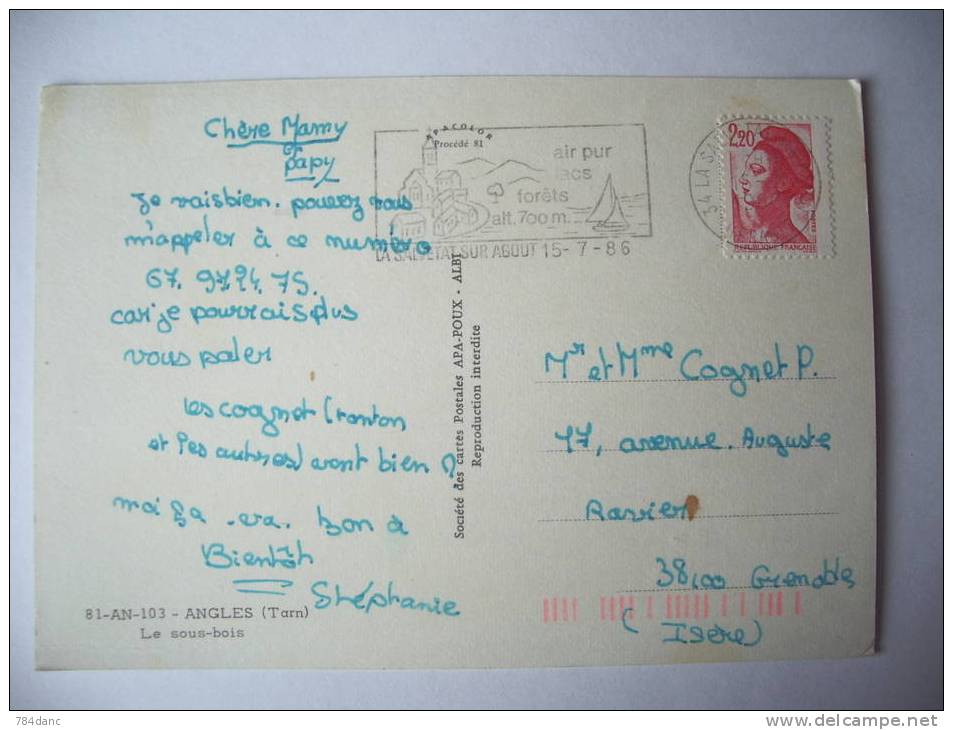 Chère Mamy
et
papy
Je vais bien. pouvez vous
m'appeler à ce numéro
67. 97 24. 75.
car je pourrais plus
vous paler
les cognet (tonton
et les autres) vont bien ?
moi ça va. bon à
Bientôt
Stéphanie
81-AN-103 - ANGLES (Tarn)
Le sous-bois
APACOLOR
Procédé 81
air pur
lacs
forêts
alt. 700 m.
LA SALVETAT SUR AGOUT 15-7-86
34 LA SA
2,20
REPUBLIQUE FRANÇAISE
Société des cartes Postales APA-POUX - ALBI
Reproduction interdite
Mr et Mme Cognet P.
17, avenue. Auguste
Ravier
38100 Grenoble
(Isère)
784danc
http://www.delcampe.net